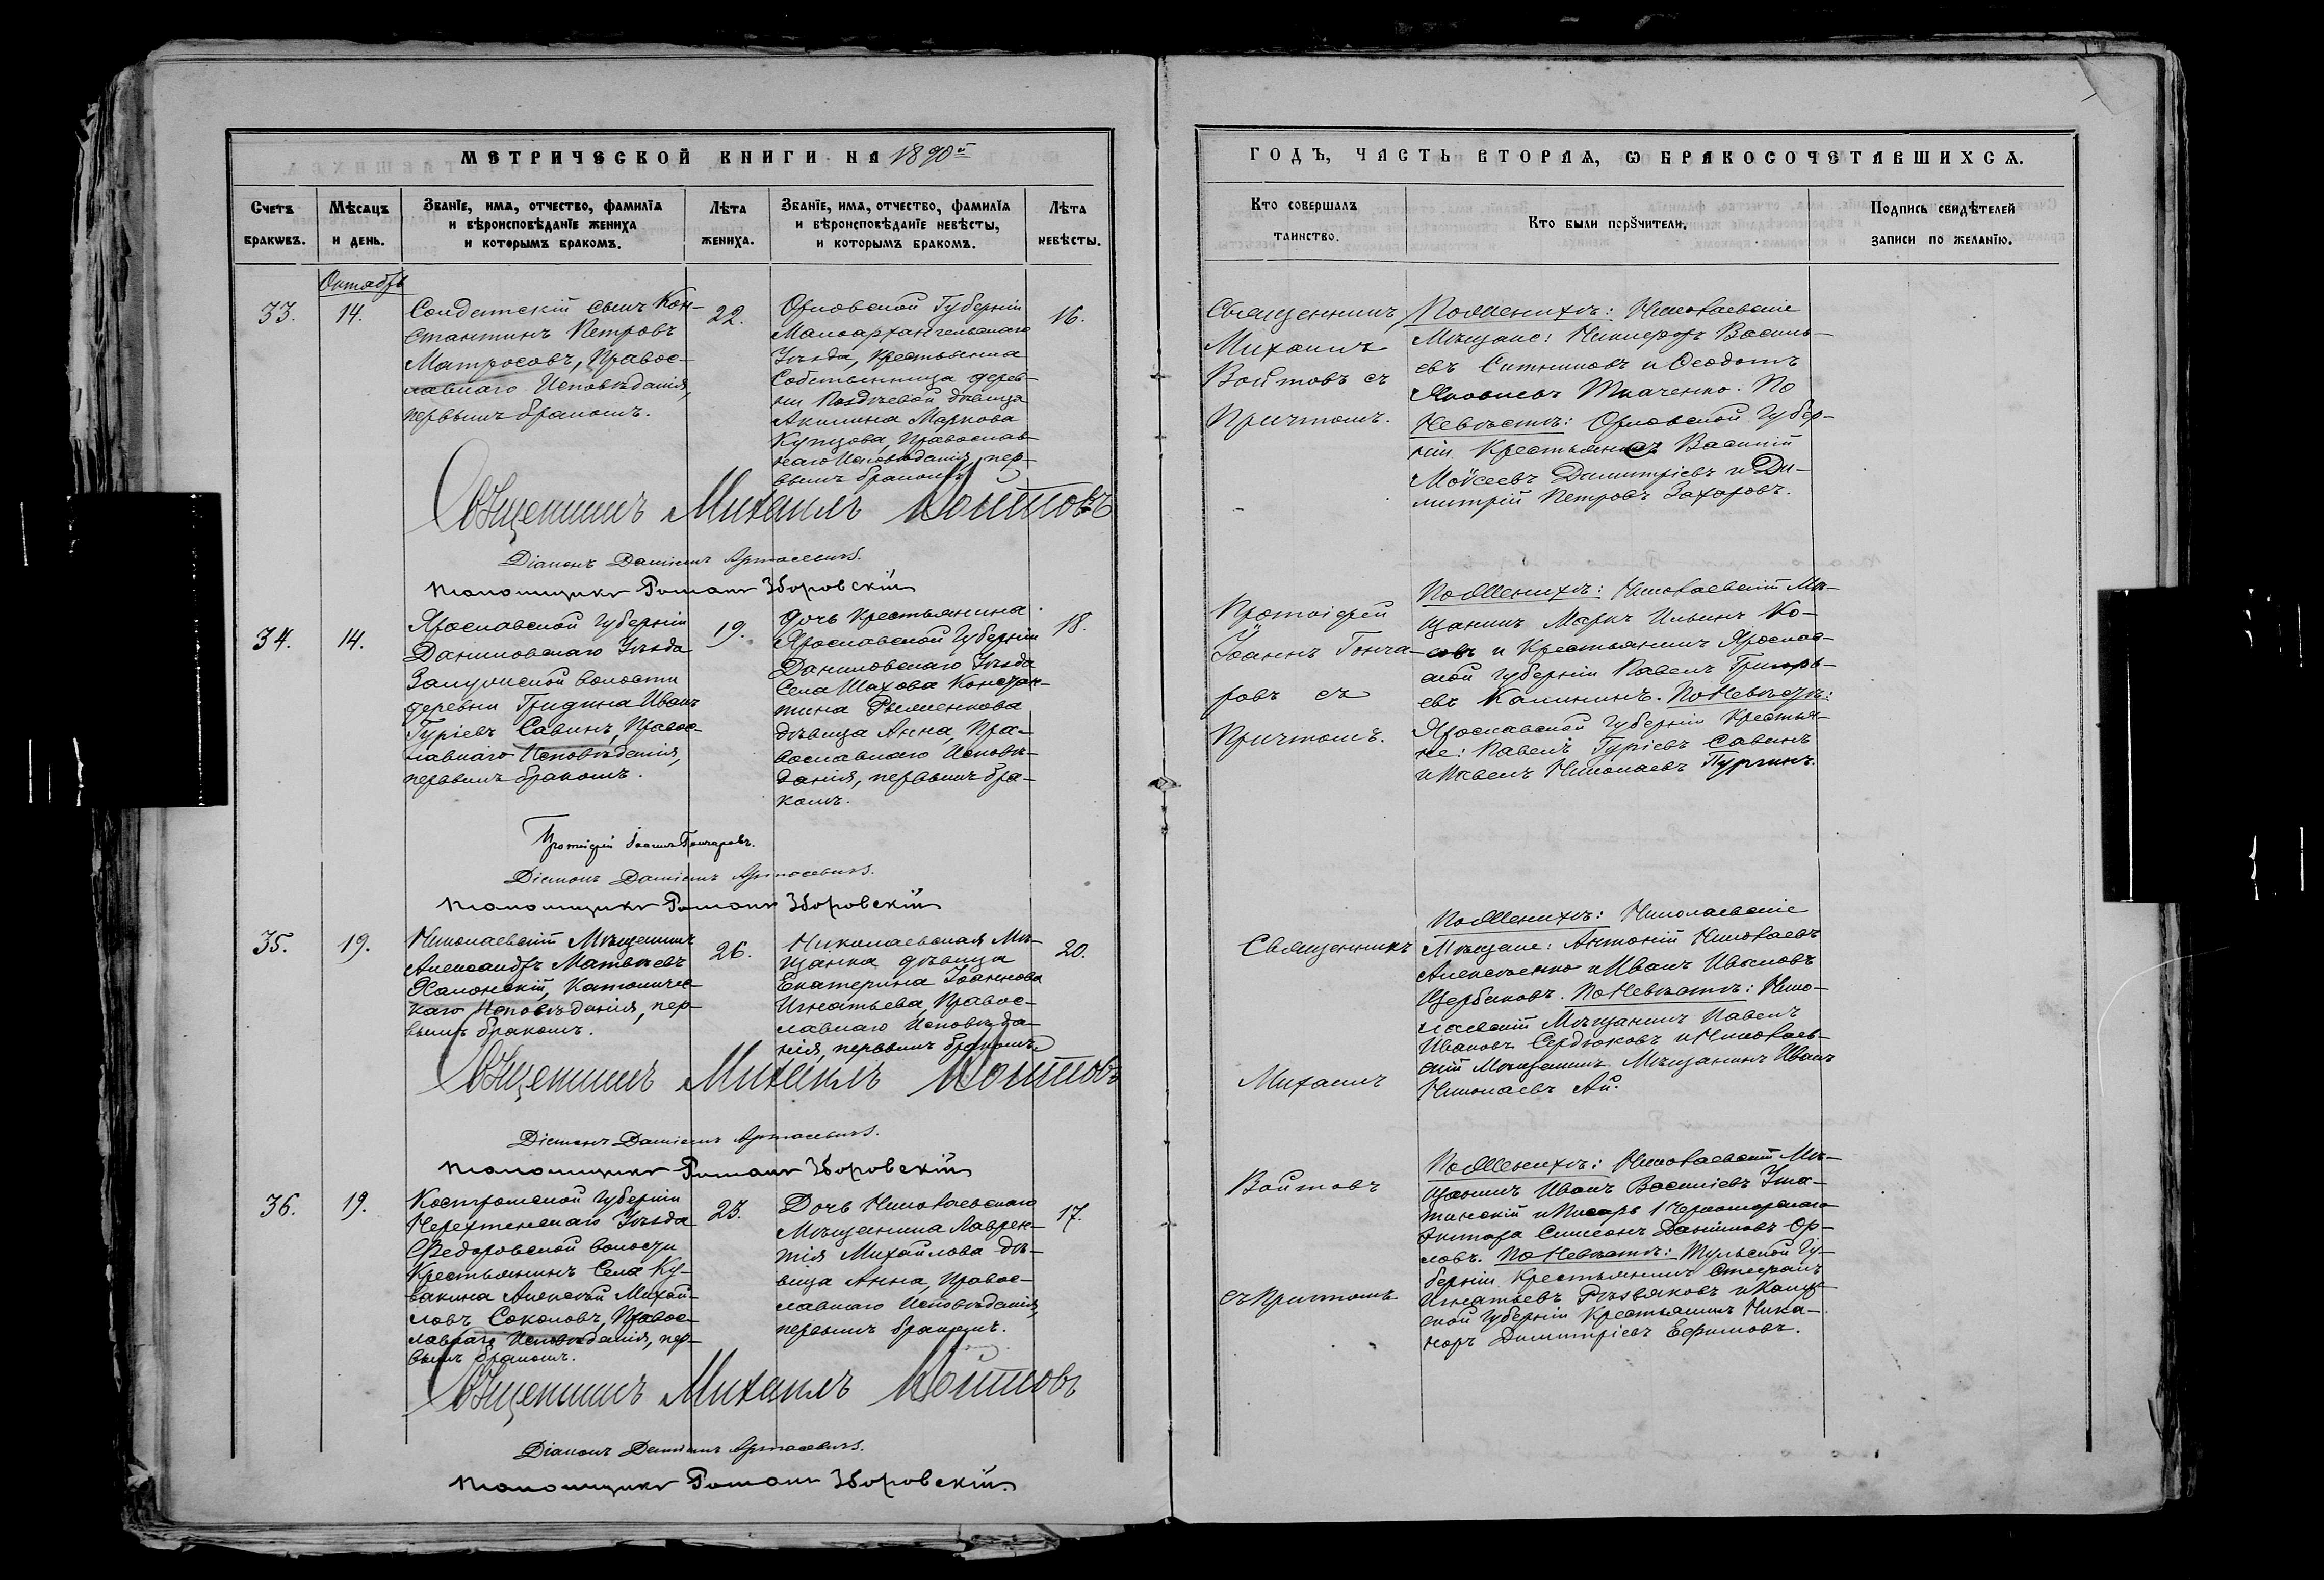 МЕТРИЧЕСКОЙ КНИГИ НА 1890й
ГОДЪ, ЧАСТЬ ВТОРАѦ, Ѡ БРАКОСОЧЕТАВШИХСѦ.
Счетъ браковъ.
Мѣсѧцъ и день.
Званїе, имѧ, отчество, фамилїѧ и вѣроисповѣданїе жениха и которымъ бракомъ.
Лѣта жениха.
Званїе, имѧ, отчество, фамилїѧ и вѣроисповѣданїе невѣсты, и которымъ бракомъ.
Лѣта невѣсты.
Кто совершалъ таинство.
Кто были порꙋчители.
Подпись свидѣтелей записи по желанїю.
Октябрь
33.
14.
Солдатскій сынъ Кон-
стантинъ Петровъ
Матросовъ, Правос-
лавнаго Исповѣданія,
первымъ бракомъ.
22.
Орловской Губерніи
Малоархангельскаго
Уѣзда, Крестьянка
Собственница дерев-
ни дѣвица
Акилина Маркова
Купцова, Православ-
наго Исповѣданія, пер-
вымъ бракомъ
16.
Священникъ
Михаилъ
Войтовъ съ
Причтомъ.
По Женихѣ: Николаевскіе
Мѣщане: Никифоръ Василь-
евъ Ситниковъ и Ѳеодотъ
Яковлевъ Ткаченко. По
Невѣстѣ: Орловской Губер-
ніи Крестьяне Василій
Моѵсеевъ Димитріевъ и Ди-
митрій Петровъ Захаровъ.
Священникъ Михаилъ Войтовъ
Діаконъ Даміанъ
Псаломщикъ Романъ Зборовскій
34.
14.
Ярославской Губерніи
Даниловскаго Уѣзда
волости
деревни Гридина Иванъ
Гуріевъ Савинъ, Правос-
лавнаго Исповѣданія,
первымъ бракомъ.
19.
Дочь Крестьянина
Ярославской Губерніи
Даниловскаго Уѣзда
Села Шахова Констан-
тина
дѣвица Анна, Пра-
вославнаго Исповѣ-
данія, первымъ бра-
комъ.
18.
Протоіерей
Іоаннъ Гонча-
ровъ съ
Причтомъ.
По Женихѣ: Николаевскій Мѣ-
щанинъ Маркъ Ильинъ Ко-
совъ и Крестьянинъ Ярослав-
ской Губерніи Павелъ Григорь-
евъ Калининъ. По Невѣстѣ:
Ярославской Губерніи Крестья-
не: Павелъ Гуріевъ Савинъ
и Павелъ Николаевъ
Протоіерей Іоаннъ Гончаровъ.
Діаконъ Даміанъ
Псаломщикъ Романъ Зборовскій
35.
19.
Николаевскій Мѣщанинъ
Александръ Матвѣевъ
Католичес-
каго Исповѣданія, пер-
вымъ бракомъ.
26.
Николаевская Мѣ-
щанка дѣвица
Екатерина Іоаннова
Игнатьева, Правос-
лавнаго Исповѣда-
нія, первымъ бракомъ.
20.
Священникъ
Михаилъ
По Женихѣ: Николаевскіе
Мѣщане: Антоній Николаевъ
Алексѣенко и Иванъ Ивановъ
Щербаковъ. По Невѣстѣ: Нико-
лаевскій Мѣщанинъ Павелъ
Ивановъ Сердюковъ и Николаев-
скій Мѣщанинъ Мѣщанинъ Иванъ
Николаевъ
Священникъ Михаилъ Войтовъ
Діаконъ Даміанъ
Псаломщикъ Романъ Зборовскій
36.
19.
Костромской Губерніи
Нерехтскаго Уѣзда
Ѳедоровской волости
Крестьянинъ Села Ку-
Алексѣй Михай-
ловъ Соколовъ, Правос-
лавнаго Исповѣданія, пер-
вымъ бракомъ.
23.
Дочь Николаевскаго
Мѣщанина Лаврен-
тія Михайлова дѣ-
вица Анна, Правос-
лавнаго Исповѣданія,
первымъ бракомъ.
17.
Войтовъ
съ Причтомъ
По Женихѣ: Николаевскій Мѣ-
щанинъ Иванъ Василіевъ
и Писарь 1 Черноморскаго
Симеонъ Даніиловъ Ор-
ловъ. По Невѣстѣ: Тульской Гу-
берніи Крестьянинъ Стефанъ
Игнатьевъ и Калуж-
ской Губерніи Крестьянинъ Ника-
норъ Димитріевъ Ефимовъ.
Священникъ Михаилъ Войтовъ
Діаконъ Даміанъ
Псаломщикъ Романъ Зборовскій.